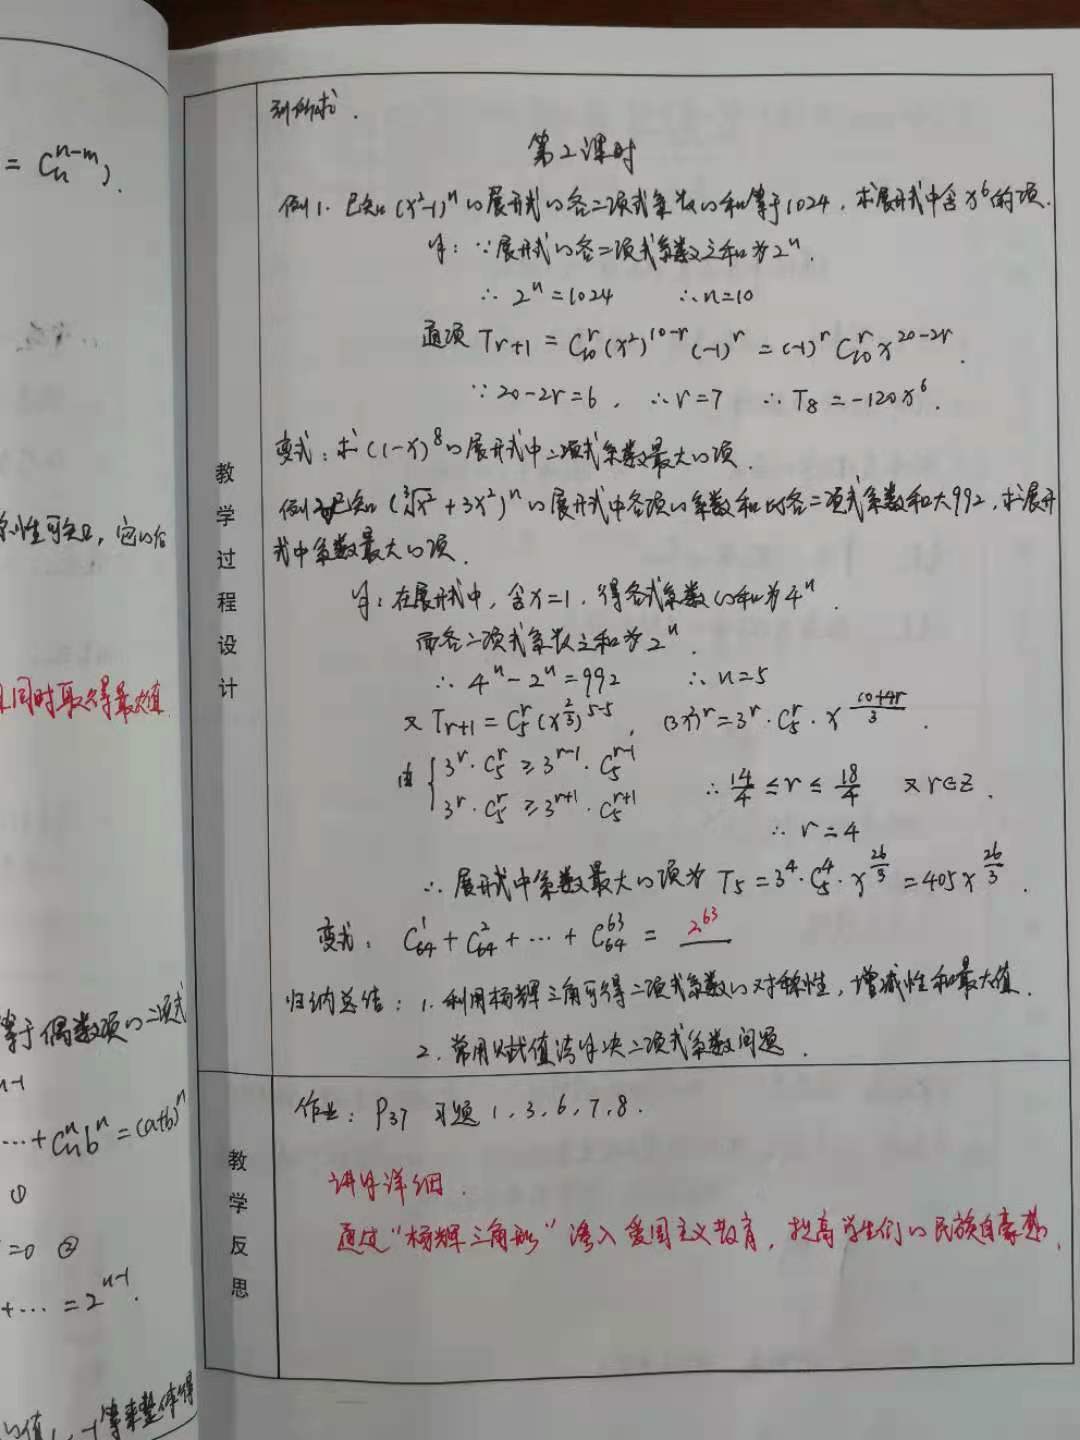 = C_n^{n-m}).
性可知, 它的
同时取得最大值
等于偶数项的二项式
n-1
…+C_n^n b^n=(a+b)^n
①
=0 ②
+…=2^{n-1}.
教学过程设计
到所求.
第2课时
例1. 已知(x²-1)^n的展开式的各二项式系数的和等于1024, 求展开式中含x^6的项.
解: ∵展开式的各二项式系数之和为2^n.
∴ 2^n=1024 ∴n=10
通项 T_{r+1} = C_{10}^r (x²)^{10-r} (-1)^r = (-1)^r C_{10}^r x^{20-2r}.
∵20-2r=6, ∴r=7 ∴T_8=-120x^6.
变式: 求(1-x)^8的展开式中二项式系数最大的项.
例2. 已知(∛x²+3x²)^n的展开式中各项的系数和比各二项式系数和大992, 求展开
式中系数最大的项.
解: 在展开式中, 令x=1, 得各式系数的和为4^n.
而各二项式系数之和为2^n.
∴ 4^n-2^n=992 ∴n=5
又 T_{r+1}=C_5^r (x^{2/3})^{5-5}, (3x²)^r=3^r·C_5^r·x^{(10+4r)/3}.
由 { 3^r·C_5^r ≥ 3^{r-1}·C_5^{r-1}
3^r·C_5^r ≥ 3^{r+1}·C_5^{r+1}
∴ 14/4 ≤ r ≤ 18/4 又r∈Z.
∴ r=4
∴ 展开式中系数最大的项为 T_5=3^4·C_5^4·x^{26/3}=405x^{26/3}.
变式: C_{64}^1+C_{64}^2+…+C_{64}^{63} = 2^{63}
归纳总结: 1. 利用杨辉三角可得二项式系数的对称性, 增减性和最大值.
2. 常用赋值法解决二项式系数问题.
教学反思
作业: P37 习题 1, 3, 6, 7, 8.
讲解详细.
通过“杨辉三角形”渗入爱国主义教育, 提高学生们的民族自豪感.